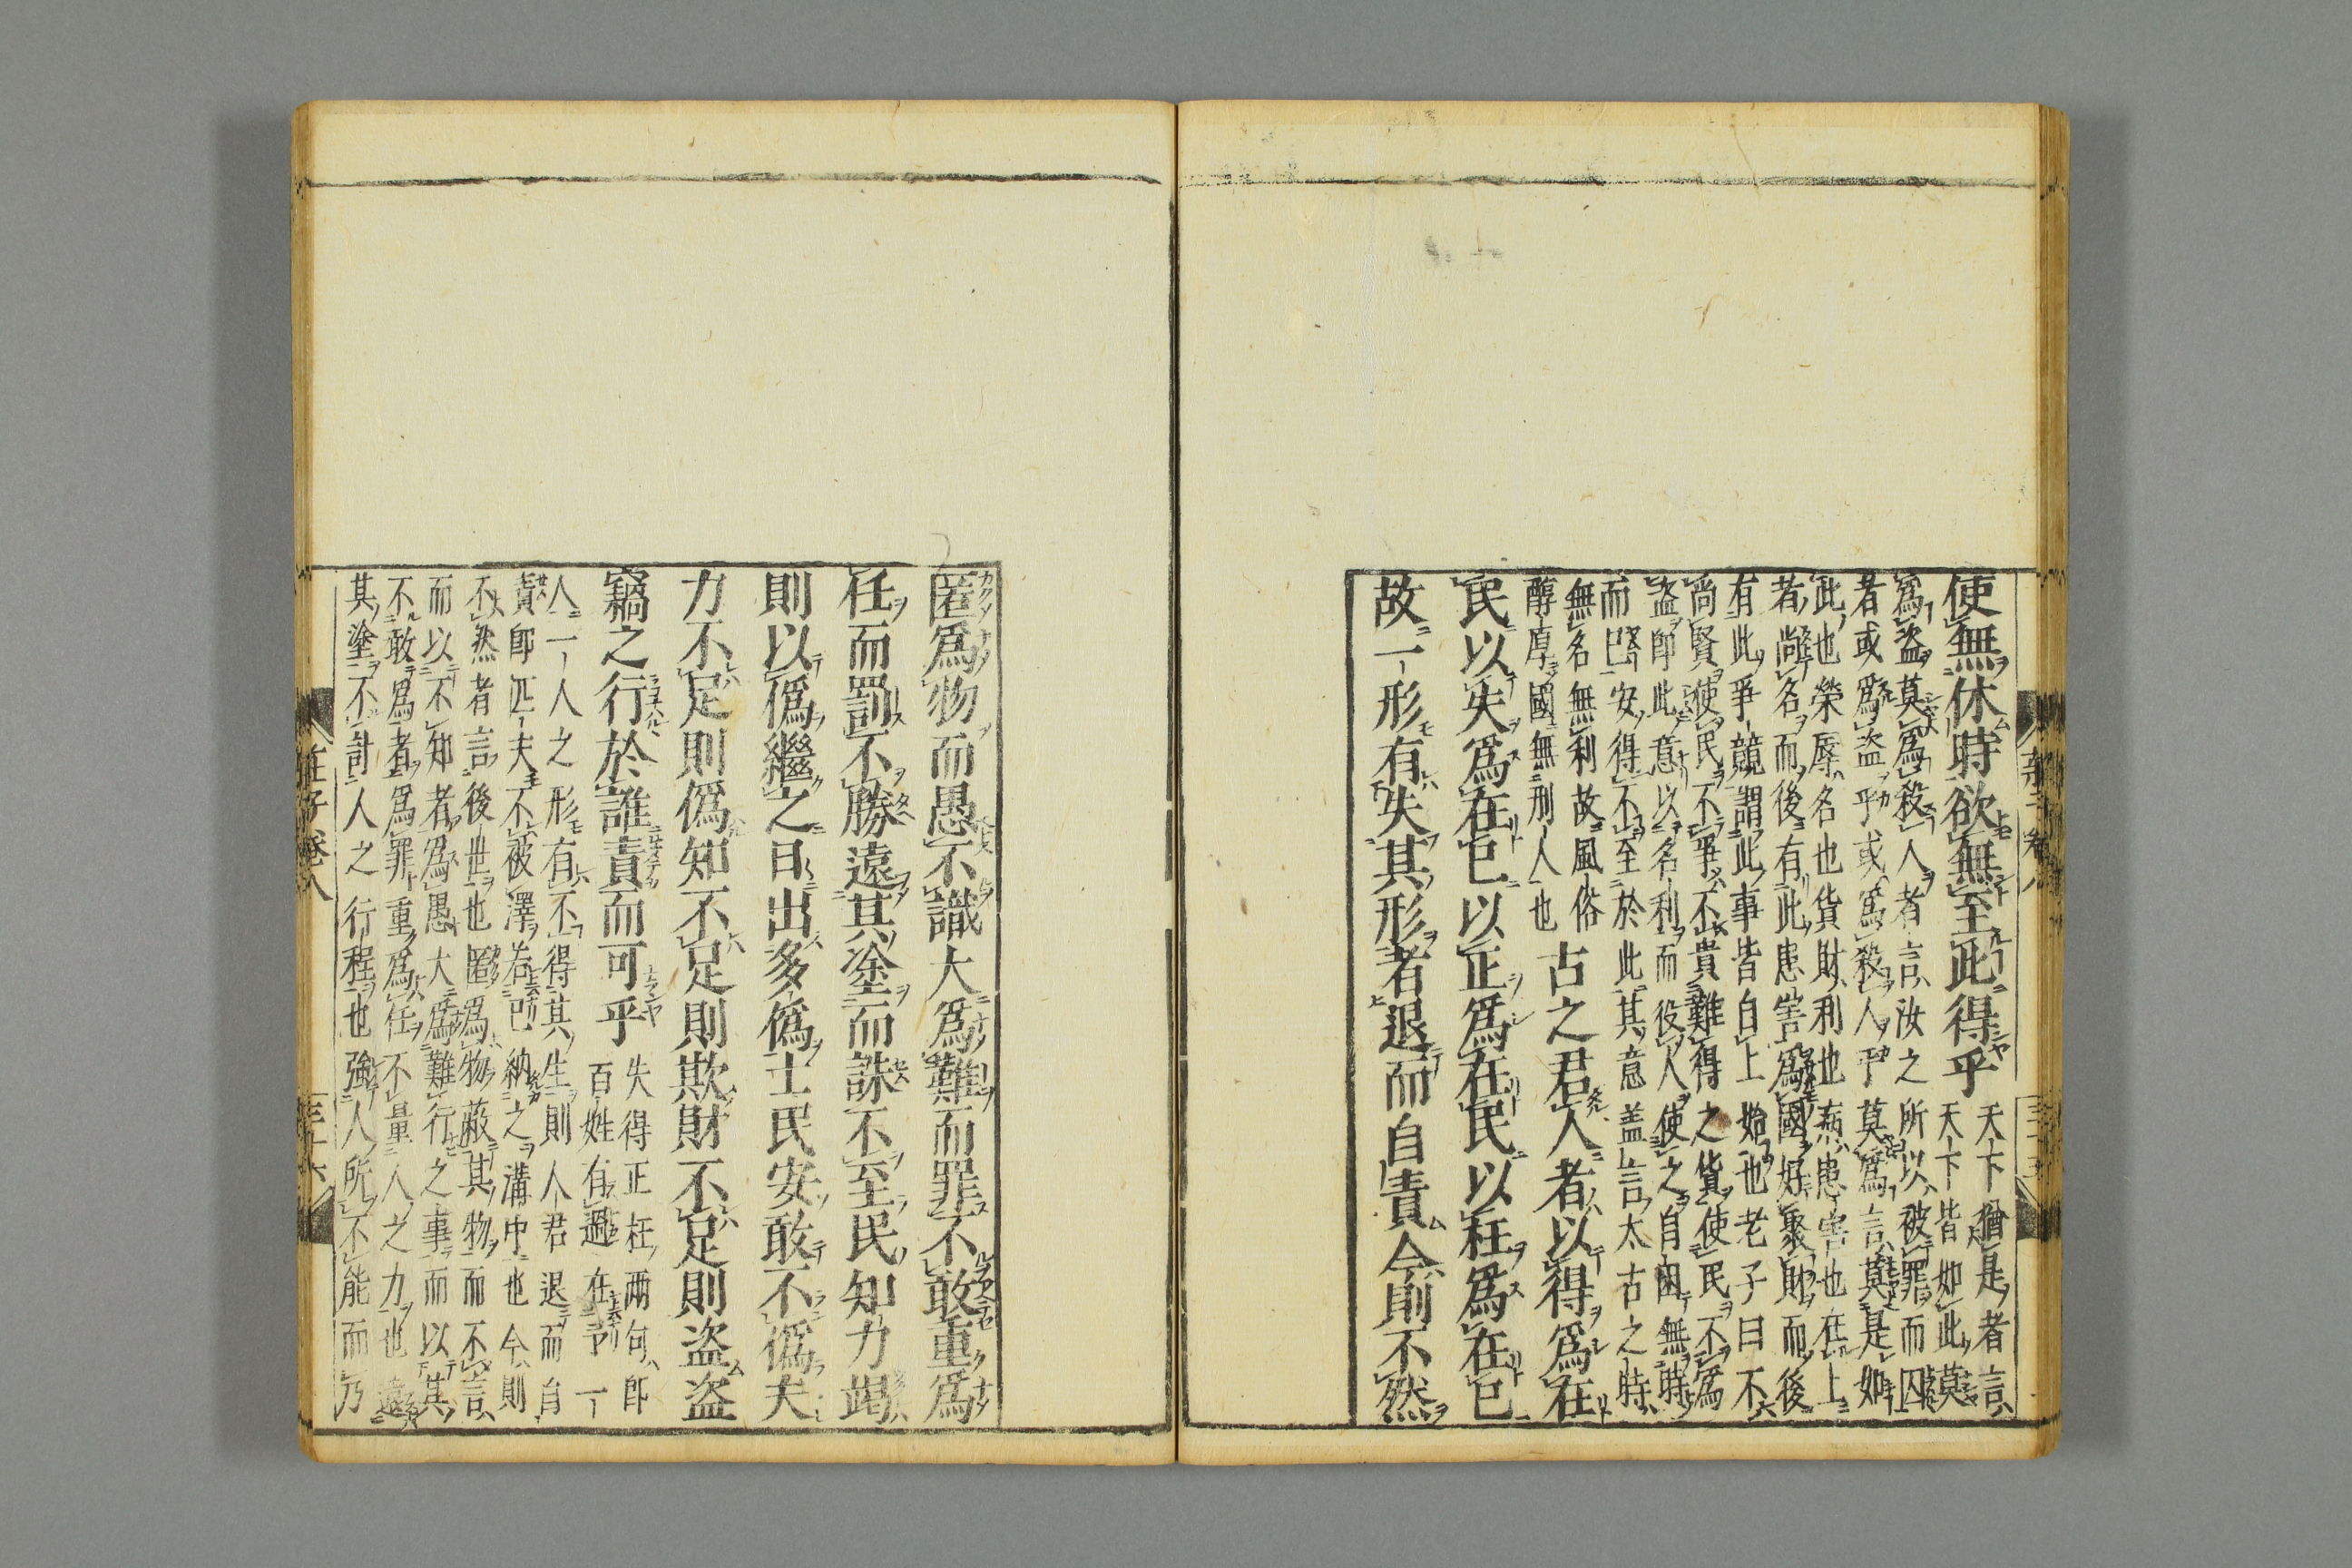 使無休時欲無至此得乎
天下猶是者言
天下皆如此莫
爲盗莫爲殺人者言汝之所以被罪而囚
者或爲盗乎或爲殺人乎莫爲言莫是如
此也榮辱名也貨財利也病患害也在上
者尚名而後有此患害爲國好聚財而後
有此爭競謂此事皆自上始也老子曰不
尚賢使民不爭不貴難得之貨使民不爲
盗即此意以名利而役人使之自困無時
而已安得不至於此其意盖言太古之時
無名無利故風俗
醇厚國無刑人也
古之君人者以得爲在
民以失爲在已以正爲在民以枉爲在已
故一形有失其形者退而自責今則不然
匿爲物而愚不識大爲難而罪不敢重爲
任而罰不勝遠其塗而誅不至民知力竭
則以僞繼之日出多僞士民安敢不僞夫
力不足則僞知不足則欺財不足則盗盗
竊之行於誰責而可乎
失得正枉兩句即
百姓有過在予一
人一人之形有不得其生則人君退而自
責即匹夫不被澤若已納之溝中也今則
不然者言後世也匿爲物蔽其物而不言
而以不知者爲愚大爲難行之事而以其
不敢爲者爲罪重爲任不量人之力也遠
其塗不計人之行程也強人所不能而乃
莊子卷八